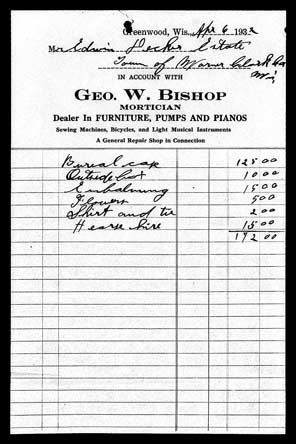 Greenwood, Wis. Apr 6 1932
Mr Edwin Decker Estate
Town of Warner Clark Co
Wis
IN ACCOUNT WITH
GEO. W. BISHOP
MORTICIAN
Dealer In FURNITURE, PUMPS AND PIANOS
Sewing Machines, Bicycles, and Light Musical Instruments
A General Repair Shop in Connection
Burial cas 125 00
Outside box 10 00
Embalming 15 00
Flowers 5 00
Shirt and tie 2 00
Hearse hire 15 00
172 00